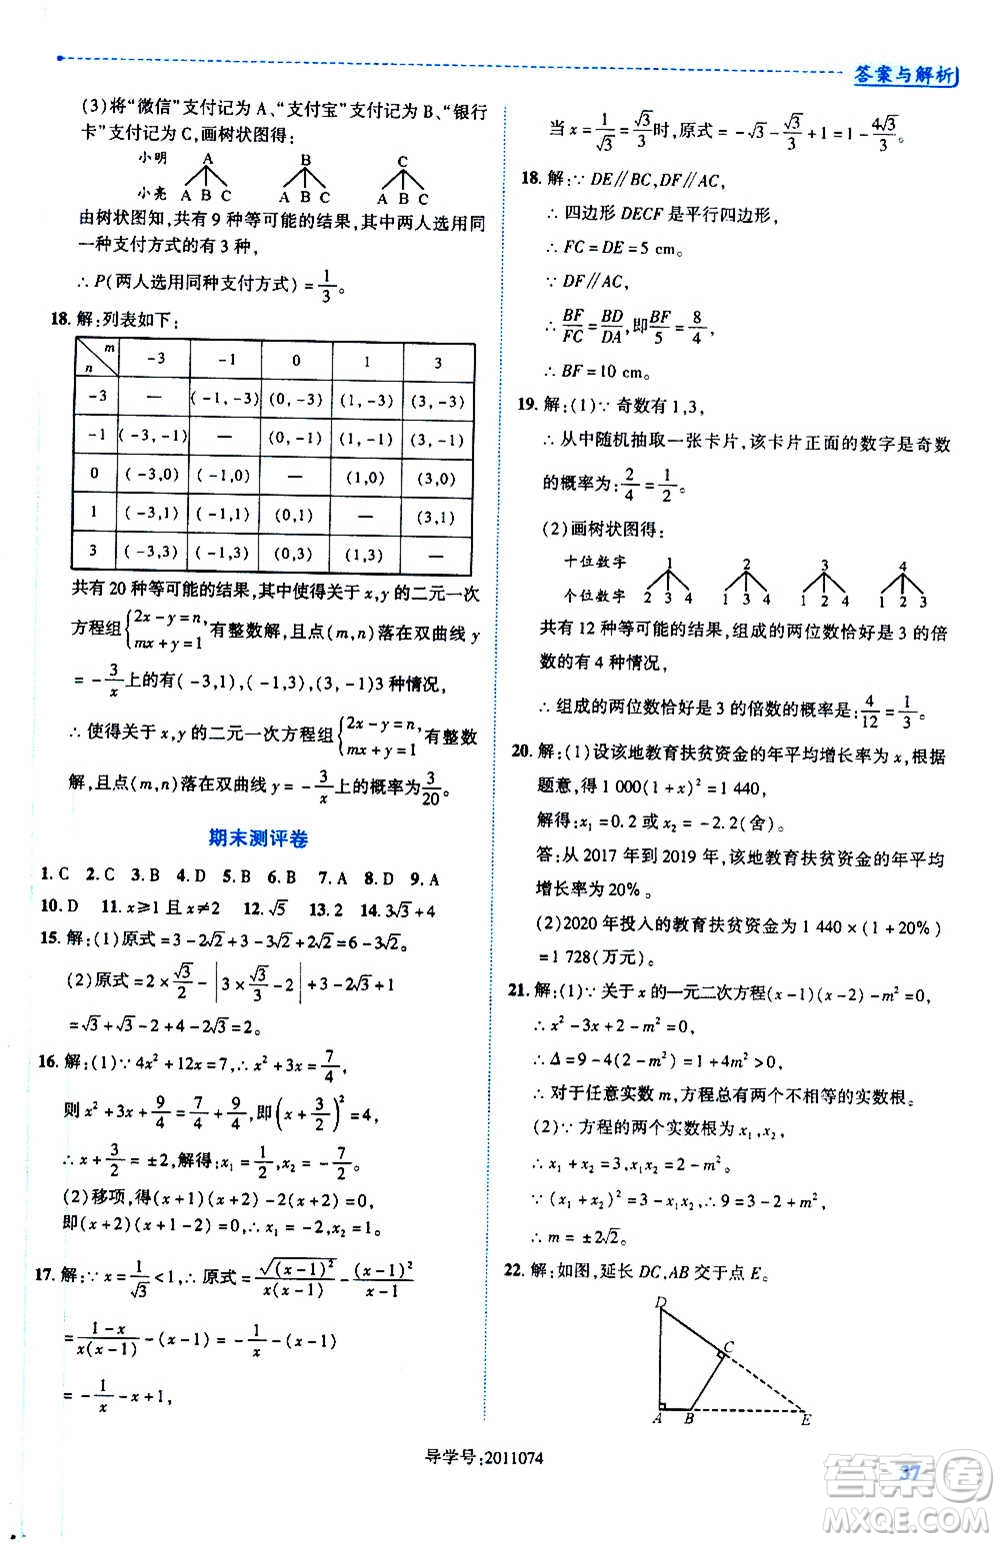 答案与解析
(3)将“微信”支付记为 A、“支付宝”支付记为 B、“银行
卡”支付记为 C,画树状图得:
小明 A B C
小亮 A B C A B C A B C
由树状图知,共有 9 种等可能的结果,其中两人选用同
一种支付方式的有 3 种,
∴P(两人选用同种支付方式)=1/3。
18. 解:列表如下:
n m -3 -1 0 1 3
-3 — (-1,-3) (0,-3) (1,-3) (3,-3)
-1 (-3,-1) — (0,-1) (1,-1) (3,-1)
0 (-3,0) (-1,0) — (1,0) (3,0)
1 (-3,1) (-1,1) (0,1) — (3,1)
3 (-3,3) (-1,3) (0,3) (1,3) —
共有 20 种等可能的结果,其中使得关于 x,y 的二元一次
方程组{2x-y=n, mx+y=1 有整数解,且点(m,n)落在双曲线 y
=-3/x上的有(-3,1),(-1,3),(3,-1)3 种情况,
∴使得关于 x,y 的二元一次方程组{2x-y=n, mx+y=1 有整数
解,且点(m,n)落在双曲线 y=-3/x上的概率为3/20。
期末测评卷
1. C 2. C 3. B 4. D 5. B 6. B 7. A 8. D 9. A
10. D 11. x≥1 且 x≠2 12. √5 13. 2 14. 3√3+4
15. 解:(1)原式=3-2√2+3-3√2+2√2=6-3√2。
(2)原式=2×√3/2-|3×√3/3-2|+3-2√3+1
=√3+√3-2+4-2√3=2。
16. 解:(1)∵4x²+12x=7,∴x²+3x=7/4,
则 x²+3x+9/4=7/4+9/4,即(x+3/2)²=4,
∴x+3/2=±2,解得:x₁=1/2,x₂=-7/2。
(2)移项,得(x+1)(x+2)-2(x+2)=0,
即(x+2)(x+1-2)=0,∴x₁=-2,x₂=1。
17. 解:∵x=1/√3<1,∴原式=√(x-1)²/x(x-1)-(x-1)²/x-1
=1-x/x(x-1)-(x-1)=-1/x-(x-1)
=-1/x-x+1,
当 x=1/√3=√3/3时,原式=-√3-√3/3+1=1-4√3/3。
18. 解:∵DE∥BC,DF∥AC,
∴四边形 DECF 是平行四边形,
∴FC=DE=5 cm。
∵DF∥AC,
∴BF/FC=BD/DA,即BF/5=8/4,
∴BF=10 cm。
19. 解:(1)∵奇数有 1,3,
∴从中随机抽取一张卡片,该卡片正面的数字是奇数
的概率为:2/4=1/2。
(2)画树状图得:
十位数字 1 2 3 4
个位数字 2 3 4 1 3 4 1 2 4 1 2 3
共有 12 种等可能的结果,组成的两位数恰好是 3 的倍
数的有 4 种情况,
∴组成的两位数恰好是 3 的倍数的概率是:4/12=1/3。
20. 解:(1)设该地教育扶贫资金的年平均增长率为 x,根据
题意,得 1 000(1+x)²=1 440,
解得:x₁=0.2 或 x₂=-2.2(舍)。
答:从 2017 年到 2019 年,该地教育扶贫资金的年平均
增长率为 20%。
(2)2020 年投入的教育扶贫资金为 1 440×(1+20%)
=1 728(万元)。
21. 解:(1)∵关于 x 的一元二次方程(x-1)(x-2)-m²=0,
∴x²-3x+2-m²=0,
∴Δ=9-4(2-m²)=1+4m²>0,
∴对于任意实数 m,方程总有两个不相等的实数根。
(2)∵方程的两个实数根为 x₁,x₂,
∴x₁+x₂=3,x₁x₂=2-m²。
∵(x₁+x₂)²=3-x₁x₂,∴9=3-2+m²,
∴m=±2√2。
22. 解:如图,延长 DC,AB 交于点 E。
D
C
A B E
导学号:2011074
37
答案圈
MXQE.COM